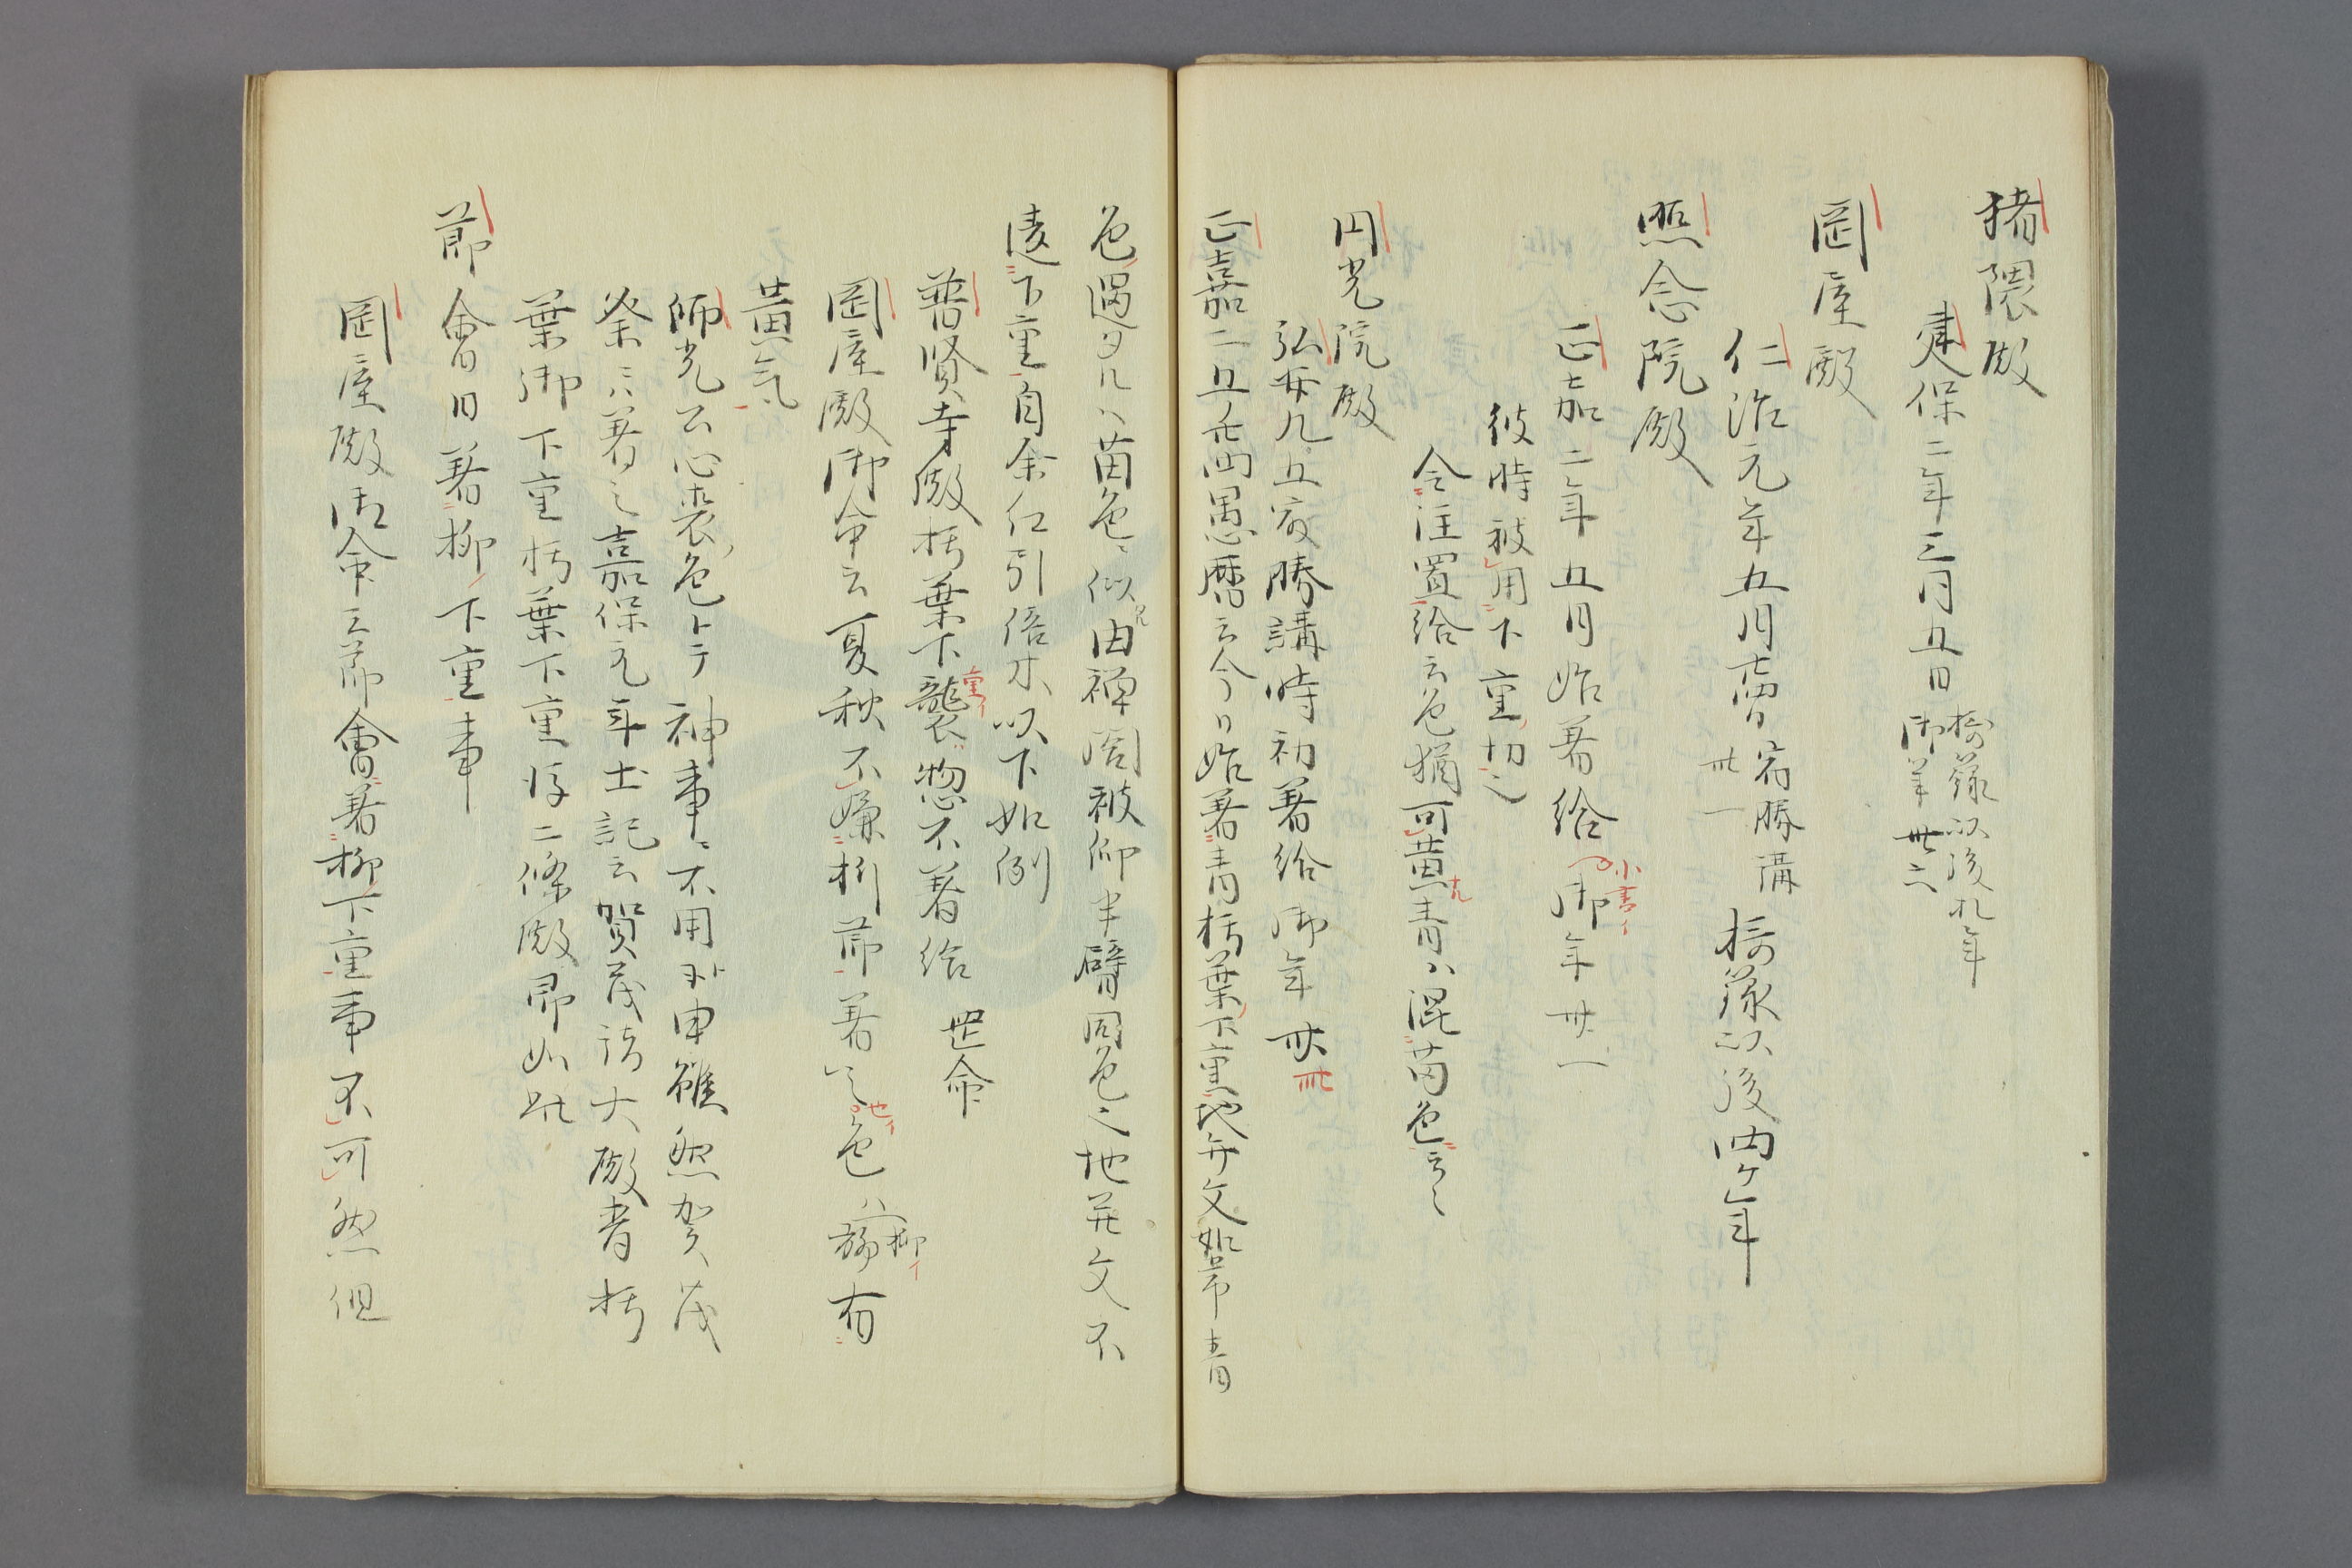 猪隈殿
建保二年三月五日 摂籙以後九年
御年卅六
岡屋殿
仁治元年五月 最勝講 摂籙以後四ケ年
卅一
照念院殿
正嘉二年五月始着給 御年卅一
小書イ
彼時被用下重切之
今注置給云色猶可黄青ハ混苗色云々
円光院殿
弘安九五最勝講時初着給御年卅
卅
正嘉二五 四愚暦云今日始着青朽葉下重地并文如常青
色過タルハ苗色ニ似由禅閤被仰半臂同色之地并文不
違下重自余仁引倍木以下如例
普賢寺殿朽葉下襲惣不着給 世命
重イ
岡屋殿御命云夏秋不嫌折節着之色ハ 有
也イ
柳イ
黄気
師光云心喪色トテ神事ニ不用ヨシ申雖然賀茂
祭ニハ着之嘉保元年士記云賀茂詣大殿者朽
葉御下重朽葉下重後二條殿即如此
節會日着柳下重事
岡屋殿御命云節會着柳下重事不可然但